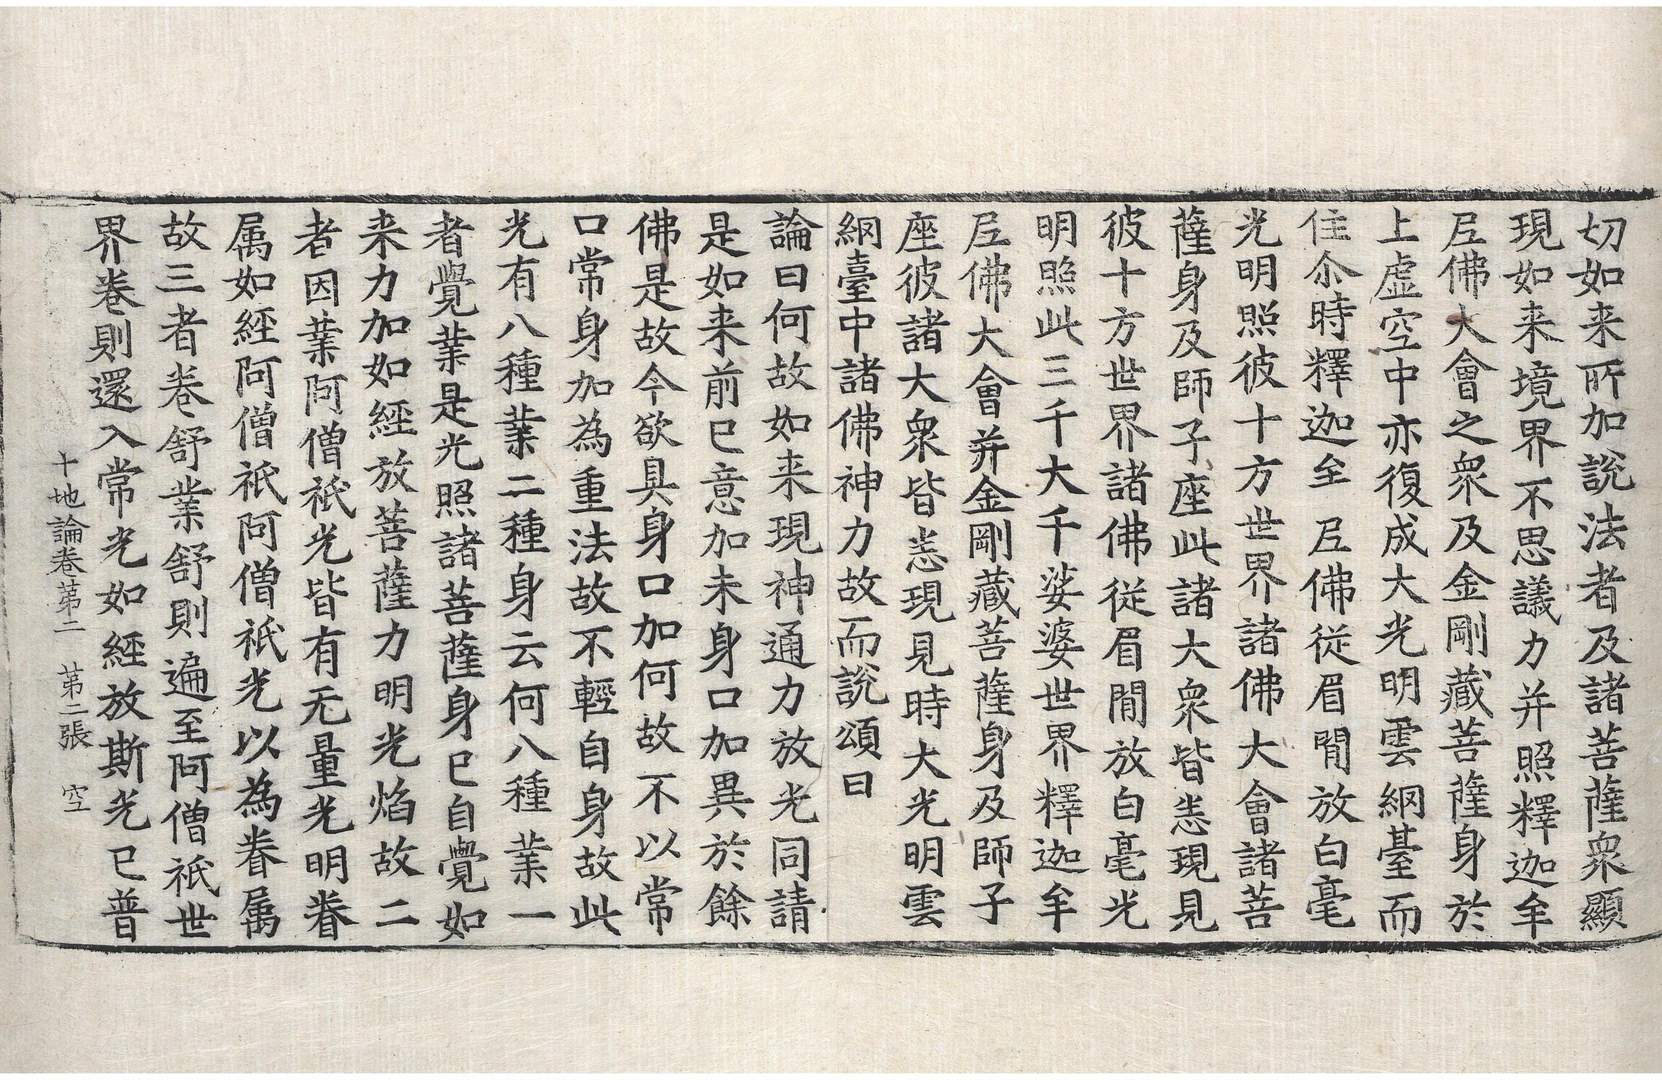 切如来所加說法者及諸菩薩衆顯
現如来境界不思議力并照釋迦牟
尼佛大會之衆及金剛藏菩薩身於
上虛空中亦復成大光明雲網臺而
住尒時釋迦牟尼佛從眉間放白毫
光明照彼十方世界諸佛大會諸菩
薩身及師子座此諸大衆皆悉現見
彼十方世界諸佛從眉間放白毫光
明照此三千大千娑婆世界釋迦牟
尼佛大會并金剛藏菩薩身及師子
座彼諸大衆皆悉現見時大光明雲
網臺中諸佛神力故而說頌曰
論曰何故如来現神通力放光同請
是如来前已意加未身口加異於餘
佛是故今欲具身口加何故不以常
口常身加為重法故不輕自身故此
光有八種業二種身云何八種業一
者覺業是光照諸菩薩身已自覺如
来力加如經放菩薩力明光焰故二
者因業阿僧祇光皆有无量光明眷
属如經阿僧祇阿僧祇光以為眷属
故三者卷舒業舒則遍至阿僧祇世
界卷則還入常光如經放斯光已普
十地論卷第二　第二張　空